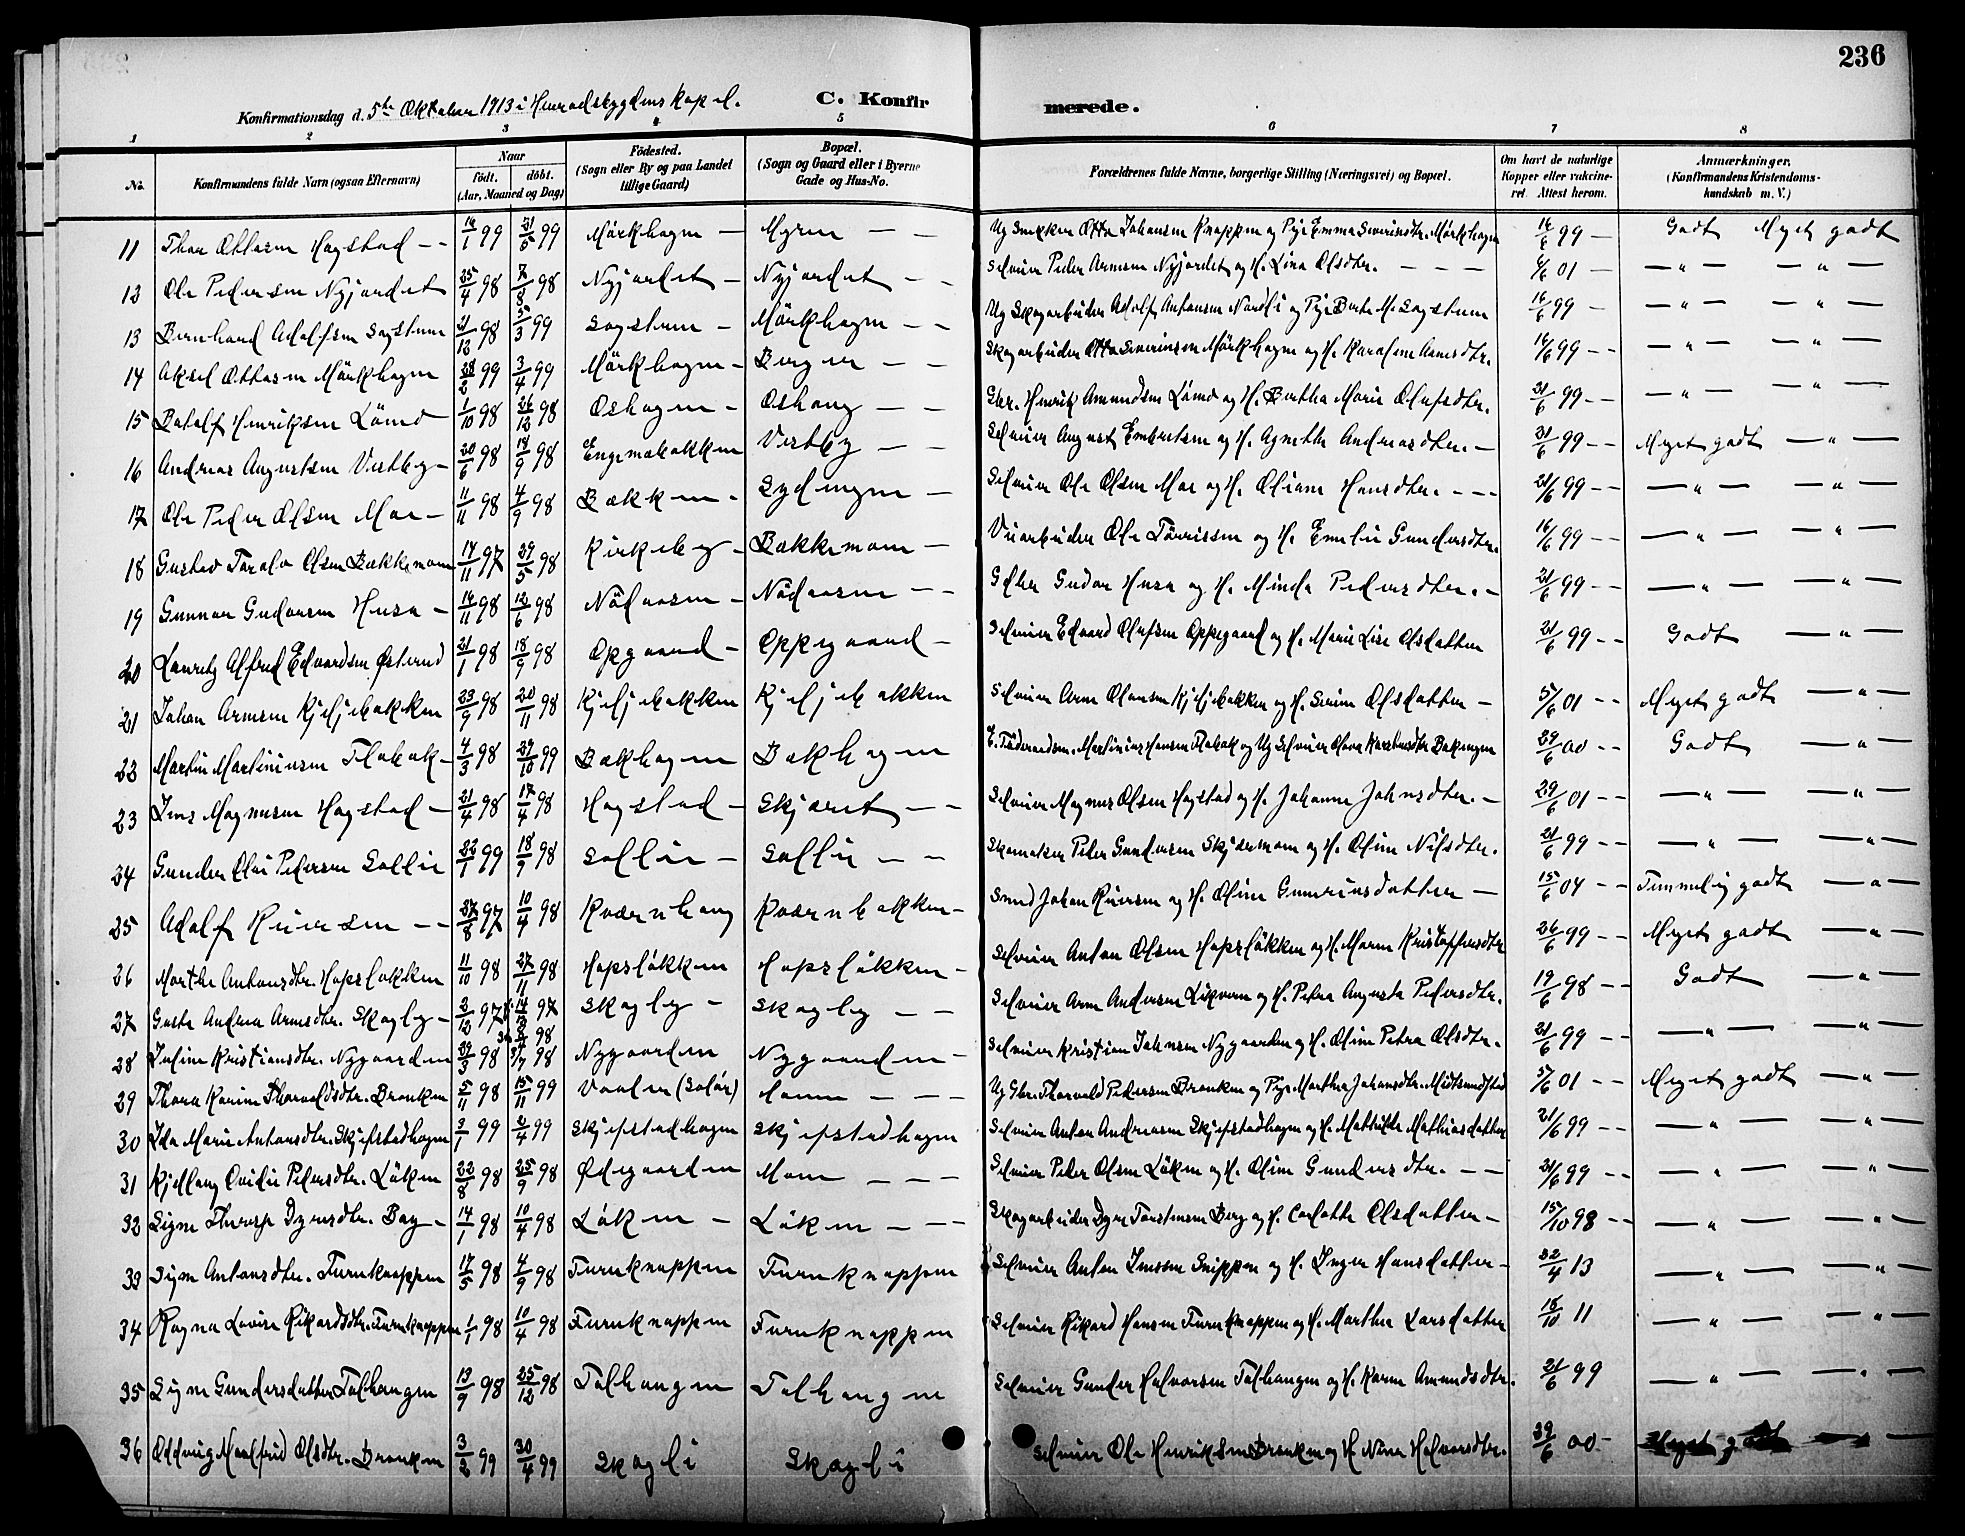 236
Konfirmationsdag d. 5te Oktober 1913 i Heradsbygdens kapel. C. Konfirmerede.
1 2 3 4 5 6 7 8
No. Konfirmandens fulde Navn (ogsaa Efternavn) Naar født. døbt. (Aar, Maaned og Dag) Fødested. (Sogn eller By og paa Landet tillige Gaard) Bopæl. (Sogn og Gaard eller i Byerne Gade og Hus-No. Forældrenes fulde Navne, borgerlige Stilling (Næringsvei) og Bopæl. Om havt de naturlige Kopper eller vaccineret. Attest herom. Anmærkninger, (Konfirmandens Kristendomskundskab m. V.)
11 Thor Ottosen Hagstad -- 16/1 99 21/5 99 Mörkhagen - Myren - - Ug Snekker Otto Johansen Knappen og Pige Emma Severinsdtr. Mörkhagen 16/6 99 - Godt Meget godt
12 Ole Pedersen Nyjordet 25/4 98 7/8 98 Nyjordet - Nyjordet - - Selveier Peder Arnesen Nyjordet og H. Lina Olsdtr. - - - 6/6 01 - - " - - " -
13 Bernhard Adolfsen Sagstuen 21/12 98 5/3 99 Sagstuen - Mörkhagen - - Ug Skogarbeider Adolf Antonsen Nordli og Pige Berte M. Sagstuen 16/6 99 - - " - - " -
14 Aksel Ottosen Mörkhagen 28/2 99 3/4 99 Mörkhagen - Bergen - - Skogarbeider Otto Severinsen Mörkhagen og H. Karoline Arnesdtr. 16/6 99 -- - " - - " -
15 Botolf Henriksen Lömo 1/10 98 26/12 98 Oshagen - Oshaug - - Gbr. Henrik Amundsen Lömo og H. Bertha Marie Olufsdtr. 21/6 99 -- - " - - " -
16 Andreas Augustsen Vestby - 20/6 98 18/9 98 Engemobakken Vestby - - Selveier August Embretsen og H. Agnethe Andreasdtr. - 21/6 99 -- Meget godt - " -
17 Ole Peder Olsen Moe - 11/11 98 4/9 98 Bækken - Sydengen - Selveier Ole Olsen Moe og H. Oliane Hansdtr. --- 21/6 99 -- - " - - " -
18 Gustav Toralv Olsen Bakkemoen 14/11 97 29/5 98 Kirkeby - Bakkemoen - Veiarbeider Ole Törrissen og H. Emelie Gundersdtr. 16/6 99 -- - " - - " -
19 Gunnar Gudorsen Husa - 16/11 98 12/6 98 Nödaasen - Nödaasen - - Gbr Gudor Husa og H. Minda Pedersdtr. - 21/6 99 -- - " - - " -
20 Lauritz Alfred Edvardsen Østerud 21/1 98 18/9 98 Opgaard - Oppegaard - Selveier Edvard Olufsen Oppegaard og H. Marie Lise Olsdatter 21/6 99 -- Godt - " -
21 Johan Arnesen Kjeljebakken 23/9 98 20/11 98 Kjeljebakken Kjeljebakken Selveier Arne Olausen Kjeljebakken og H. Serine Olsdatter - 5/6 01 -- Meget godt - " -
22 Martin Martiniusen Flabak - 4/3 98 29/10 99 Bækhagen Bækhagen E. Föderaadsm. Martinius Hansen Flabak og Ug Selveier Olava Karstensdtr Bakengen 29/6 00 -- Godt - " -
23 Jens Magnusen Hagstad - 21/4 98 17/4 98 Hagstad - Skjæret - - Selveier Magnus Olsen Hagstad og H. Johanne Johnsdtr. - 29/6 01 -- - " - - " -
24 Gunder Olai Pedersen Sollie 22/1 99 18/9 98 Sollie - Sollie - - Skomaker Peder Gundersen Skjæremoen og H. Oline Nilsdtr. 21/6 99 -- - " - - " -
25 Adolf Reiersen -- 27/8 97 10/4 98 Kværnhaug Kværnbakken - Smed Johan Reiersen og H. Oline Guneriusdatter - 15/6 04 -- Temmelig godt - " -
26 Marthe Antonsdtr. Hopslökken 11/10 98 27/11 98 Hopslökken Hopslökken - Selveier Anton Olsen Hopslökken og H. Maren Kristoffersdtr 26/6 99 -- Meget godt - " -
27 Gusta Andrea Arnesdtr. Skogly - 2/12 97 14/12 97 Skogly - Skogly - - Selveier Arne Andersen Likvern og H. Petra Auguste Pedersdtr. 19/6 98 -- Godt - " -
28 Juline Kristiansdtr. Nygaarden 29/3 98 31/7 98 Nygaarden Nygaarden - Selveier Kristian Johnsen Nygaarden og H. Oline Petra Olsdtr. 21/6 99 -- - " - - " -
29 Thora Karine Thorvaldsdtr. Bronken 5/11 98 15/11 99 Vaaler (Solör) Moen - - - Ug Gbr. Thorvald Pedersen Bronken og Pige Marthea Johansdtr. Midtsundstad 5/6 01 -- Meget godt - " -
30 Ida Marie Antonsdtr. Skjefstadhagen 3/1 99 2/4 99 Skjefstadhagen Skjefstadhagen Selveier Anton Andreasen Skjefstadhagen og H. Mathilde Mathiasdatter 21/6 99 -- - " - - " -
31 Kjellaug Ovidie Pedersdtr. Löken 22/8 98 25/9 98 Ødegaarden Moen - - - Selveier Peder Olsen Löken og H. Oline Gundersdtr. - - 21/6 99 -- - " - - " -
32 Signe Therese Dyresdtr. Berg - 14/1 98 10/4 98 Löken - Löken - - - Skogarbeider Dyre Torstensen Berg og H. Carlotte Olsdatter - 15/10 98 -- - " - - " -
33 Signe Antonsdtr. Furuknappen 17/5 98 4/9 98 Furuknappen Furuknappen Selveier Anton Jenssen Snippen og H. Inger Hansdatter - 22/4 13 - " - - " -
34 Ragna Lovise Rikardsdtr. Furuknappen 1/1 98 10/4 98 Furuknappen Furuknappen Selveier Rikard Hansen Furuknappen og H. Marthe Larsdatter 18/10 11 - " - - " -
35 Signe Gundersdatter Tolhaugen 13/9 98 25/12 98 Tolhaugen Tolhaugen Selveier Gunder Halvorsen Tolhaugen og H. Karen Amundsdtr. 21/6 99 - " - - " -
36 Oddveig Maalfrid Olsdtr. Bronken 3/2 99 30/4 99 Skogli Skogli Selveier Ole Henriksen Bronken og H. Nina Halvorsdtr. 29/6 00 - Meget godt -